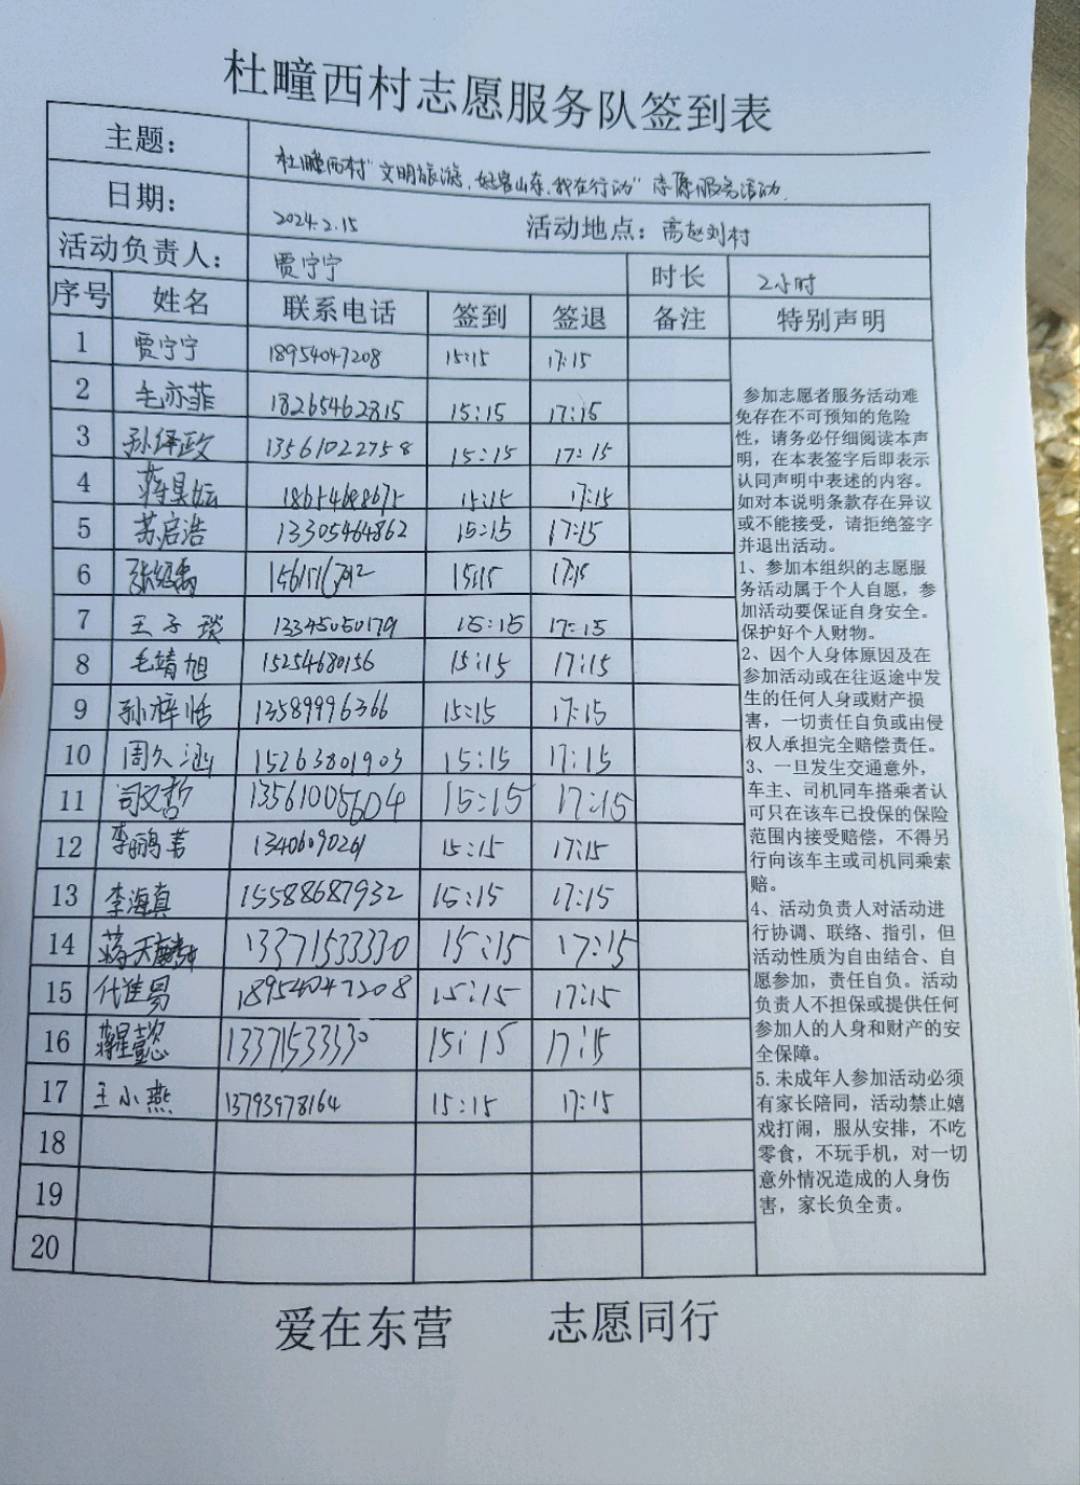 杜疃西村志愿服务队签到表
主题： 杜疃西村“文明旅游，好客山东，我在行动”志愿服务活动.
日期： 2024.2.15 活动地点：高赵刘村
活动负责人： 贾宁宁 时长 2小时
序号 姓名 联系电话 签到 签退 备注 特别声明
1 贾宁宁 18954047208 15:15 17:15
2 毛亦菲 18265462815 15:15 17:15
3 孙绎政 13561022758 15:15 17:15
4 蒋昊妘 18654698675 15:15 17:15
5 苏启浩 13305464862 15:15 17:15
6 15:15 17:15
7 王子琰 13345050179 15:15 17:15
8 毛靖旭 15254680156 15:15 17:15
9 孙梓恬 13589996366 15:15 17:15
10 周久涵 15263801903 15:15 17:15
11 司文哲 13561005604 15:15 17:15
12 李鹏菁 13406090261 15:15 17:15
13 李海真 15588687932 15:15 17:15
14 蒋天麟 13371533330 15:15 17:15
15 代淮易 18954047208 15:15 17:15
16 蒋星懿 13371533330 15:15 17:15
17 王小燕 13793978164 15:15 17:15
18
19
20
参加志愿者服务活动难
免存在不可预知的危险
性，请务必仔细阅读本声
明，在本表签字后即表示
认同声明中表述的内容。
如对本说明条款存在异议
或不能接受，请拒绝签字
并退出活动。
1、参加本组织的志愿服
务活动属于个人自愿，参
加活动要保证自身安全。
保护好个人财物。
2、因个人身体原因及在
参加活动或在往返途中发
生的任何人身或财产损
害，一切责任自负或由侵
权人承担完全赔偿责任。
3、一旦发生交通意外，
车主、司机同车搭乘者认
可只在该车已投保的保险
范围内接受赔偿，不得另
行向该车主或司机同乘索
赔。
4、活动负责人对活动进
行协调、联络、指引，但
活动性质为自由结合、自
愿参加，责任自负。活动
负责人不担保或提供任何
参加人的人身和财产的安
全保障。
5.未成年人参加活动必须
有家长陪同，活动禁止嬉
戏打闹，服从安排，不吃
零食，不玩手机，对一切
意外情况造成的人身伤
害，家长负全责。
爱在东营 志愿同行